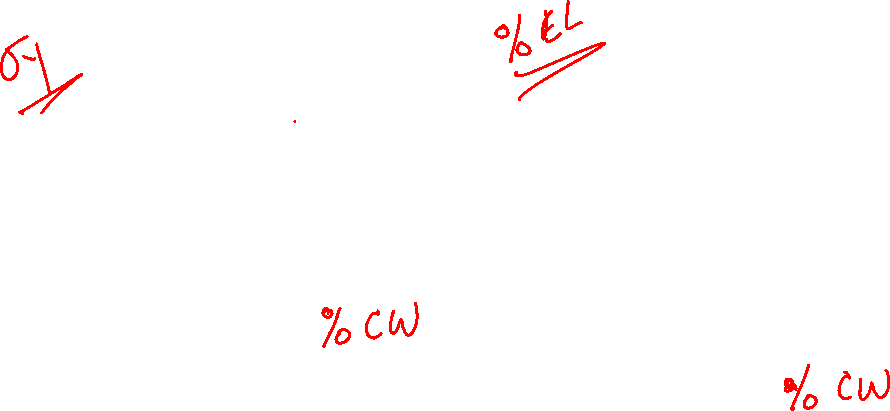 σy
% EL
% CW
% CW